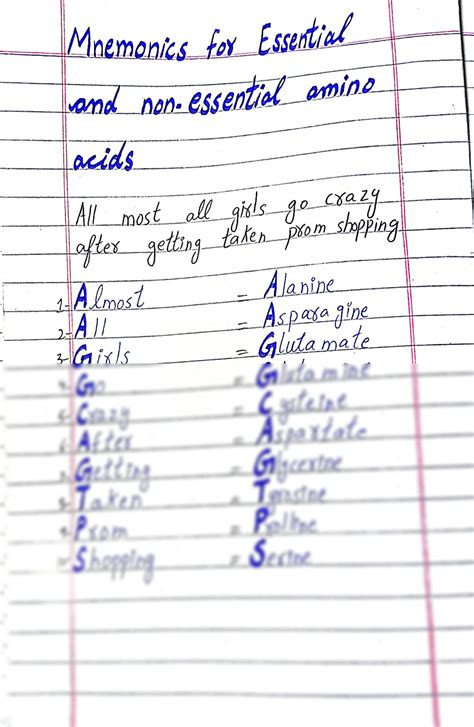 Mnemonics for Essential
and non-essential amino
acids
All most all girls go crazy
after getting taken prom shopping
1- Almost = Alanine
2- All = Asparagine
3- Girls = Glutamate
Go = Glutamine
Crazy = Cysteine
After = Aspartate
Getting = Glycerine
Taken = Tyrosine
Prom = Proline
Shopping = Serine